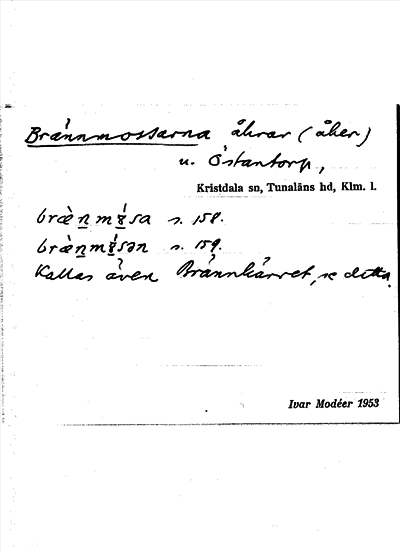 Brännmossarna åkrar (åker)
u. Östantorp,
Kristdala sn, Tunaläns hd, Klm. l.
s. 158.
s. 159.
Kallas även Brännkärret, se detta.
Ivar Modéer 1953